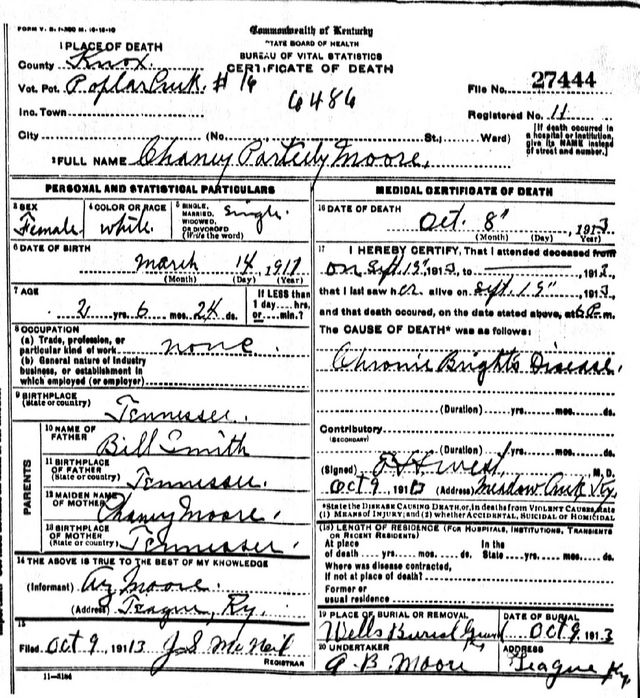 FORM V. S. 1-200 M. 10-18-10
Commonwealth of Kentucky
STATE BOARD OF HEALTH
BUREAU OF VITAL STATISTICS
CERTIFICATE OF DEATH
1 PLACE OF DEATH
County Knox.
Vot. Pct. Poplar Creek # 16
Inc. Town
City (No. St.; Ward)
6486
File No. 27444
Registered No. 11
[If death occurred in a hospital or institution, give its NAME instead of street and number.]
2 FULL NAME Chaney Moore,
PERSONAL AND STATISTICAL PARTICULARS
3 SEX Female
4 COLOR OR RACE White.
5 SINGLE, MARRIED, WIDOWED, OR DIVORCED (Write the word) Single.
6 DATE OF BIRTH
March 14 1911
(Month) (Day) (Year)
7 AGE
2 yrs. 6 mos. 24 ds.
If LESS than 1 day....hrs. or....min.?
8 OCCUPATION
(a) Trade, profession, or particular kind of work none.
(b) General nature of industry business, or establishment in which employed (or employer)
9 BIRTHPLACE (State or country) Tennessee.
PARENTS
10 NAME OF FATHER Bill Smith
11 BIRTHPLACE OF FATHER (State or country) Tennessee.
12 MAIDEN NAME OF MOTHER Chaney Moore.
13 BIRTHPLACE OF MOTHER (State or country) Tennessee.
14 THE ABOVE IS TRUE TO THE BEST OF MY KNOWLEDGE
(Informant) Moore.
(Address) Teague, Ky.
15
Filed Oct 9, 1913 J.S. McNeil
REGISTRAR
11-3184
MEDICAL CERTIFICATE OF DEATH
16 DATE OF DEATH
Oct. 8" , 1913
(Month) (Day) (Year)
17 I HEREBY CERTIFY, That I attended deceased from
on Sept. 15" 1913, to , 191
that I last saw her alive on Sept. 15" 1913,
and that death occured, on the date stated above, at 6 P. m.
The CAUSE OF DEATH* was as follows:
Chronic Brights Disease.
(Duration) yrs. mos. ds.
Contributory
(SECONDARY)
(Duration) yrs. mos. ds.
(Signed) West, M. D.
Oct 9, 1913 (Address) Meadow Creek Ky.
*State the DISEASE CAUSING DEATH, or, in deaths from VIOLENT CAUSES, state (1) MEANS OF INJURY; and (2) whether ACCIDENTAL, SUICIDAL or HOMICIDAL
(18) LENGTH OF RESIDENCE (FOR HOSPITALS, INSTITUTIONS, TRANSIENTS OR RECENT RESIDENTS)
At place of death yrs. mos. ds. In the State yrs. mos. ds.
Where was disease contracted, If not at place of death?
Former or usual residence
19 PLACE OF BURIAL OR REMOVAL
Wells Burial Ground
DATE OF BURIAL
Oct 9, 1913
20 UNDERTAKER
A. B. Moore
ADDRESS
Teague Ky.